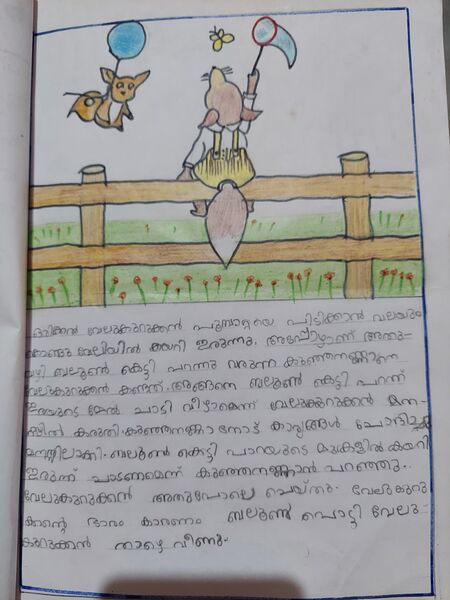 ഒരിക്കൽ വേലുകുറുക്കൻ പൂമ്പാറ്റയെ പിടിക്കാൻ വലയും
കൊണ്ടു വേലിയിൽ കയറി ഇരുന്നു. അപ്പോഴാണ് അതു-
വഴി ബലൂൺ കെട്ടി പറന്നു വരുന്ന കുഞ്ഞനണ്ണാനെ
വേലുകുറുക്കൻ കണ്ടത്. അങ്ങനെ ബലൂൺ കെട്ടി പറന്ന്
ഇരയുടെ മേൽ ചാടി വീഴാമെന്ന് വേലുകുറുക്കൻ മന-
സ്സിൽ കരുതി. കുഞ്ഞനണ്ണാനോട് കാര്യങ്ങൾ ചോദിച്ചു
മനസ്സിലാക്കി. ബലൂൺ കെട്ടി പാറയുടെ മുകളിൽ കയറി
ഇരുന്ന് ചാടണമെന്ന് കുഞ്ഞനണ്ണാൻ പറഞ്ഞു..
വേലുകുറുക്കൻ അതുപോലെ ചെയ്തു. വേലുകുറു
ക്കന്റെ ഭാരം കാരണം ബലൂൺ പൊട്ടി വേലു-
കുറുക്കൻ താഴെ വീണു.